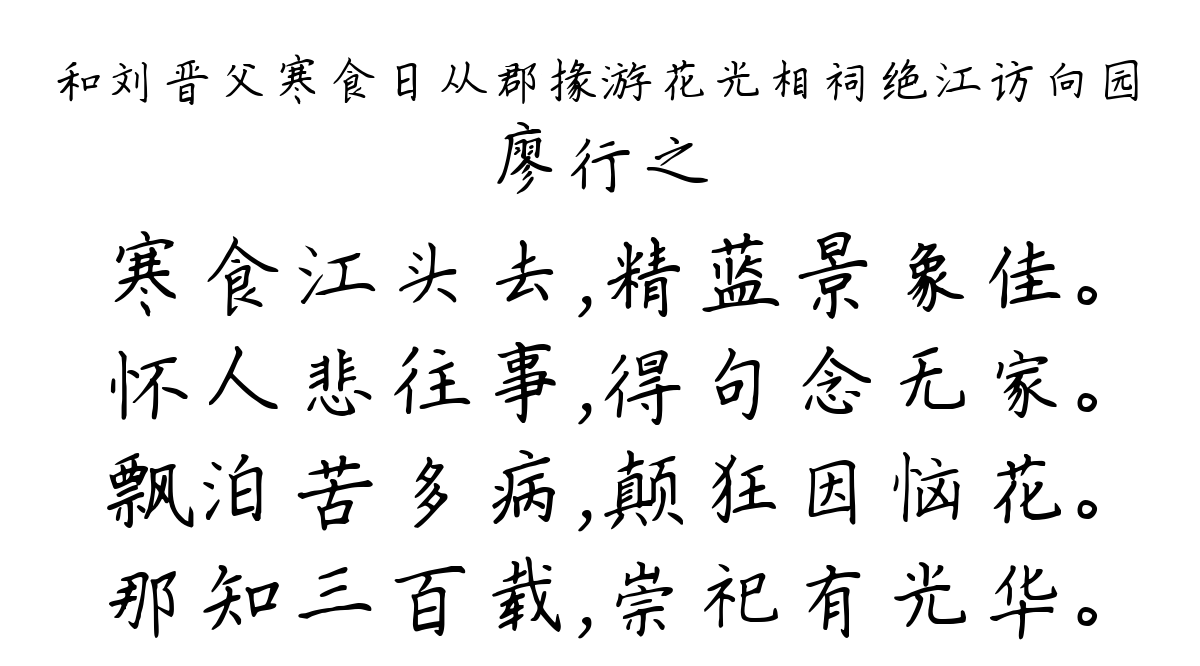 和刘晋父寒食日从郡掾游花光相祠绝江访向园
廖行之
寒食江头去,精蓝景象佳。
怀人悲往事,得句念无家。
飘泊苦多病,颠狂因恼花。
那知三百载,崇祀有光华。